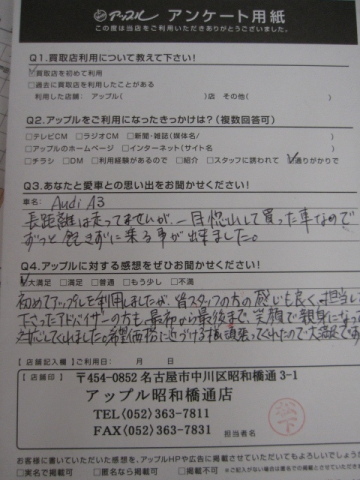 アップル アンケート用紙
この度は当店をご利用いただきありがとうございました。
Q1.買取店利用について教えて下さい!
□買取店を初めて利用
□過去に買取店を利用したことがある
利用した店舗: アップル( )店 その他( )
Q2.アップルをご利用になったきっかけは?(複数回答可)
□テレビCM □ラジオCM □新聞・雑誌(媒体名/ )
□アップルのホームページ □インターネット(サイト名 )
□チラシ □DM □利用経験があるので □紹介 □スタッフに誘われて □通りがかりで
Q3.あなたと愛車との思い出をお聞かせください!
車名: Audi A3
長距離は走ってませんが、一目惚れして買った車なので
ずっと飽きずに乗る事が出来ました。
Q4.アップルに対する感想をぜひお聞かせください!
□大満足 □満足 □普通 □もう少し □不満
初めてアップルを利用しましたが、皆スタッフの方の感じも良く、担当して
下さったアドバイザーの方も、最初から最後まで、笑顔で親身になって
対応してくれました。希望価格に近づける様頑張ってくれたので大満足です
【店舗記入欄】ご利用日: 月 日
【店舗印】
〒454-0852 名古屋市中川区昭和橋通3-1
アップル昭和橋通店
TEL(052)363-7811
FAX(052)363-7831
担当者名
お客様に書いていただいた感想を、アップルHPや広告に掲載させていただいてもよろしいでしょうか
□実名で掲載可 □匿名なら掲載可 □掲載不可